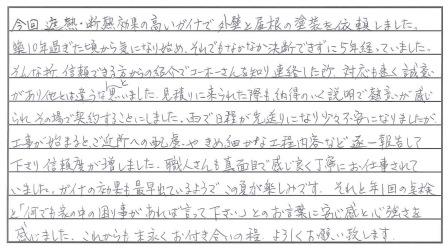 今回 遮熱・断熱効果の高いガイナで外壁と屋根の塗装を依頼しました。
築10年過ぎた頃から気になり始め、それでもなかなか決断できずに5年経っていました。
そんな折、信頼できる方からの紹介でユーホーさんを知り連絡した所 対応も良く誠意
があり他とは違うな思いました。見積りに来られた際も納得のいく説明で熱意が感じ
られ その場で契約することにしました。雨で日程が先送りになり少々不安になりましたが
工事が始まると ご近所への配慮や きめ細かな工程内容など逐一報告して
下さり信頼度が増しました。職人さんも真面目で感じ良く丁寧にお仕事されて
いました。ガイナの効果も最早出ているようで この夏が楽しみです。 それと年1回の点検
と「何でも家の中の困り事があれば言って下さい」とのお言葉に安心感と心強さを
感じました。これからも末永くお付き合いの程 よろしくお願い致します。